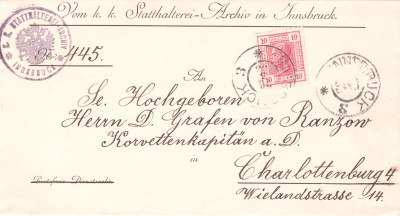 Vom k. k. Statthalterei-Archiv in Innsbruck.
K. K. STATTHALTEREI-ARCHIV
INNSBRUCK
445.
10 10
INNSBRUCK 3
An
Se. Hochgeboren
Herrn D. Grafen von Ranzow
Korvettenkapitän a. D.
in
Charlottenburg 4
Wielandstrasse 14.